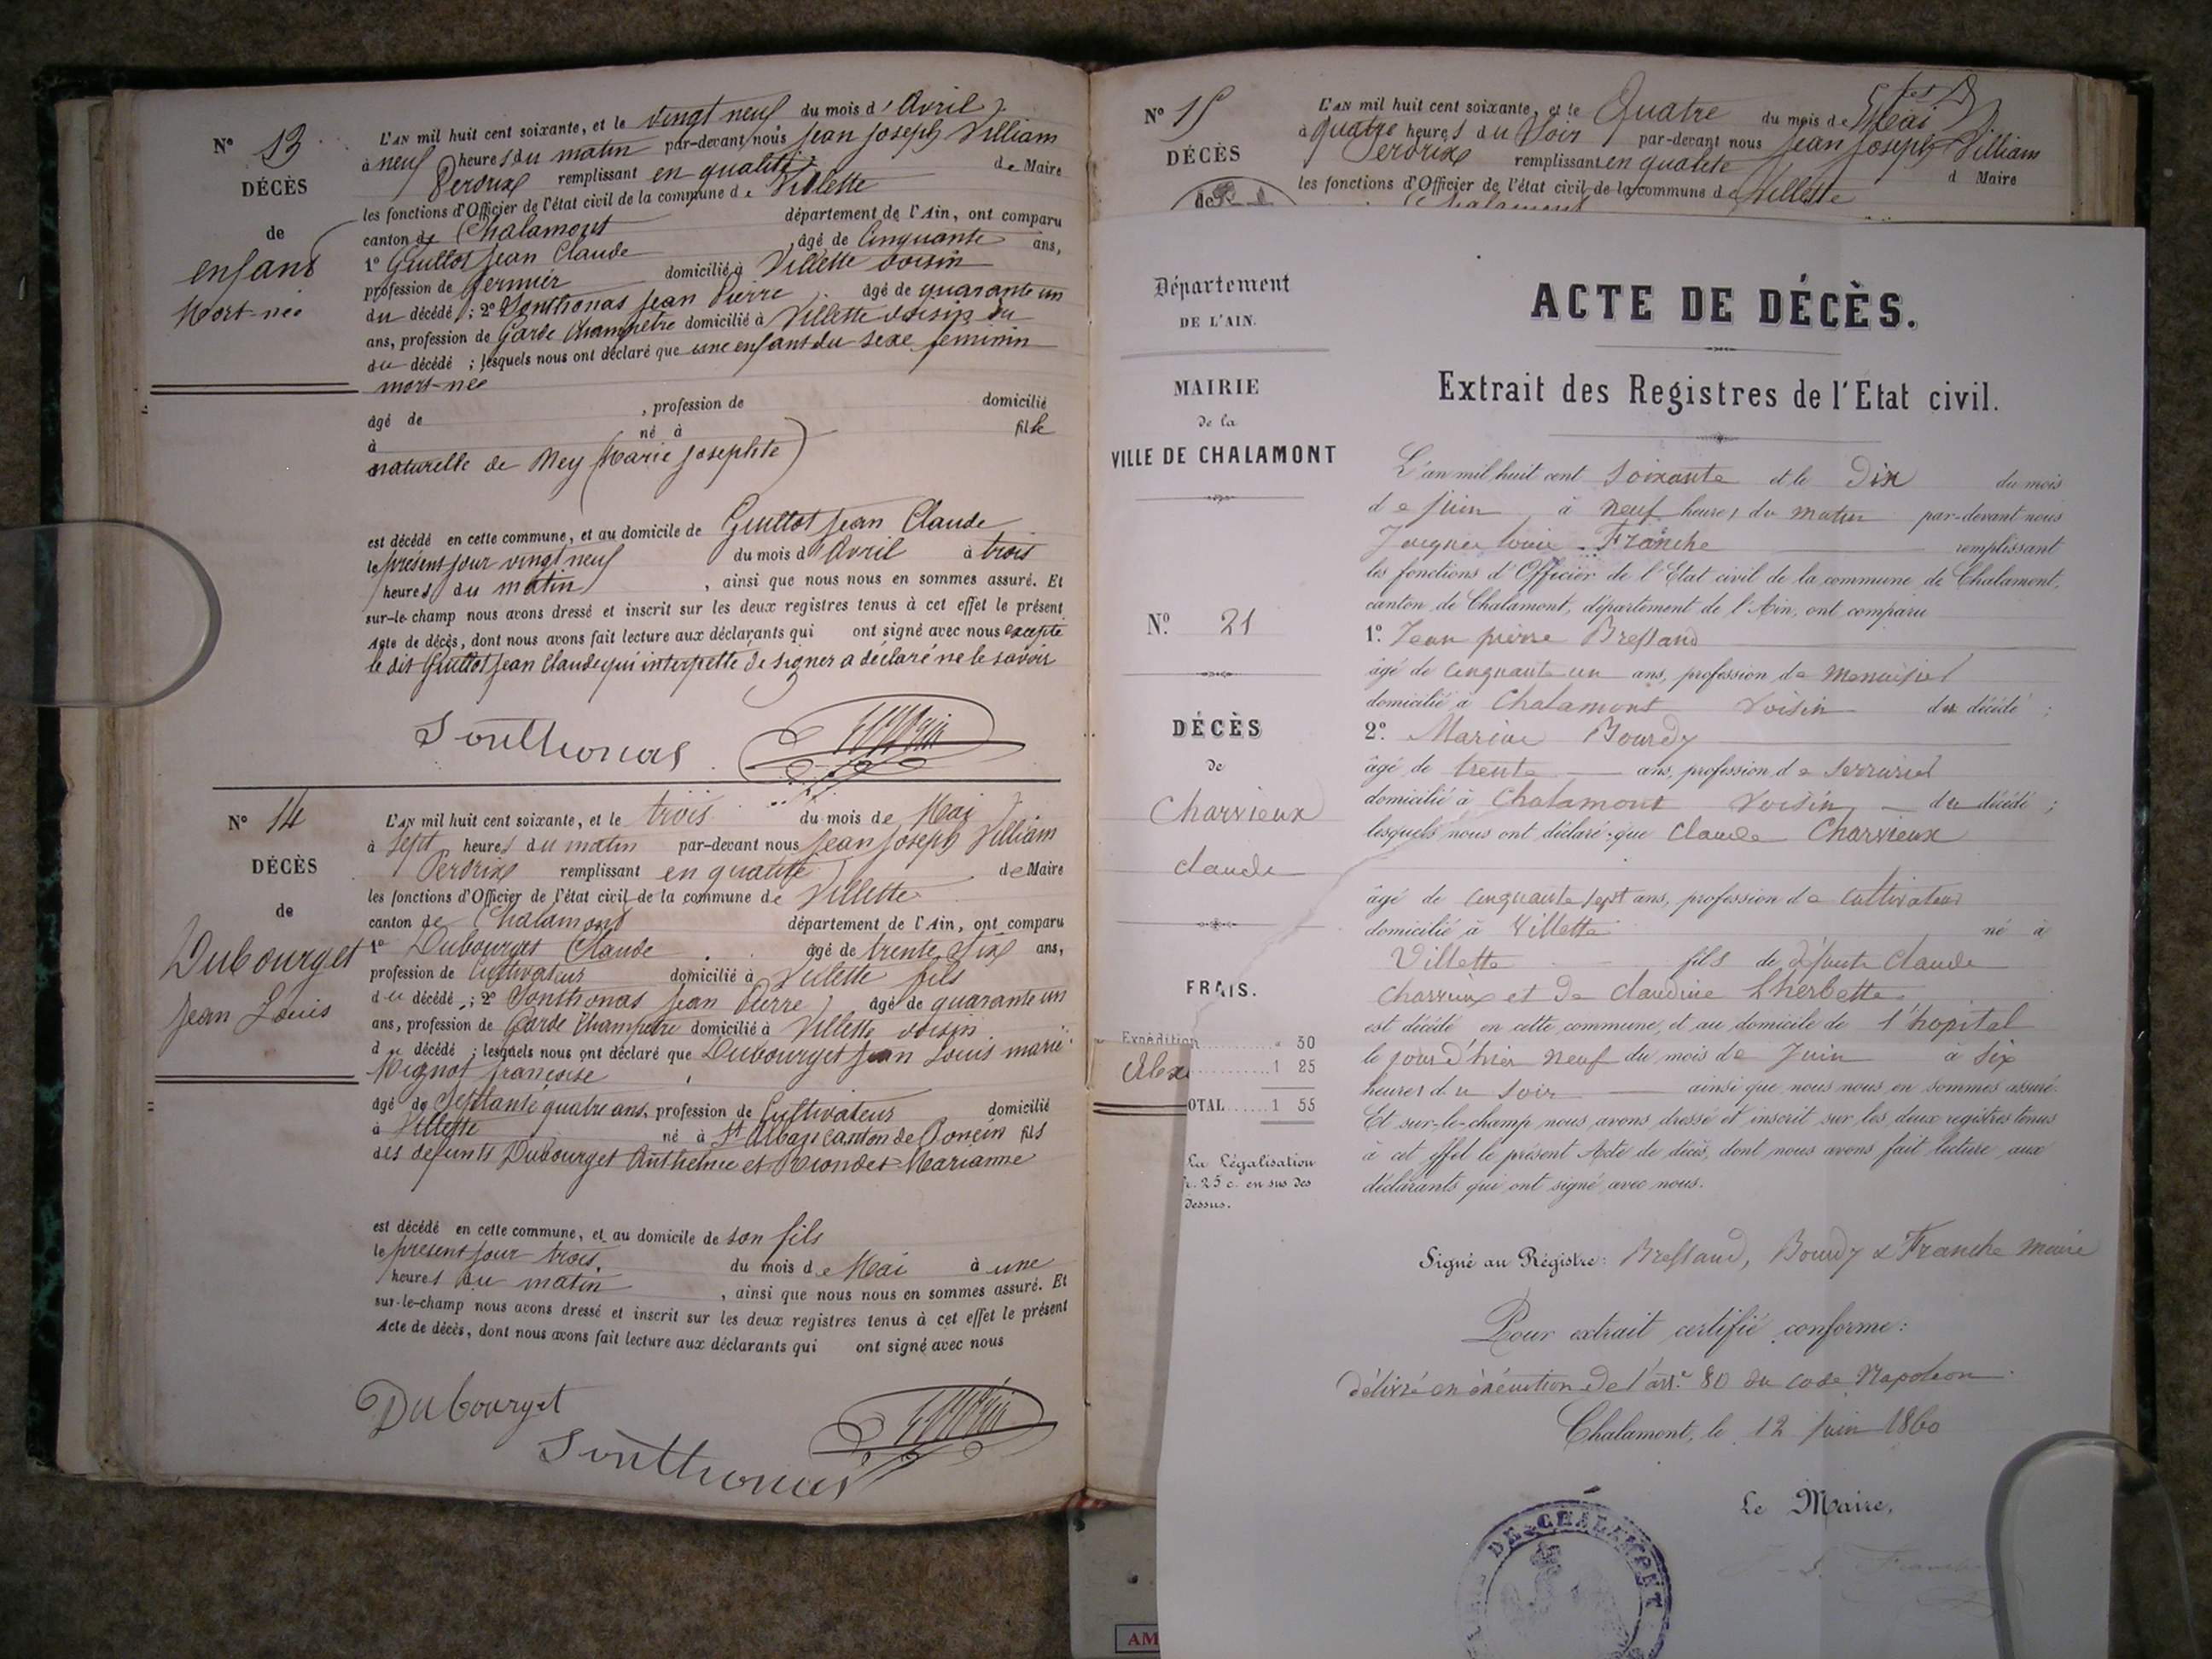 N° 13
DÉCÈS
de
enfant
Mort-née
L'AN mil huit cent soixante, et le vingt neuf du mois d'Avril
à neuf heures du matin par-devant nous Jean Joseph Villiam
Perdrix remplissant en qualité de Maire
les fonctions d'Officier de l'état civil de la commune de Villette
canton de Chalamont département de l'Ain, ont comparu
1° Guillot Jean Claude, âgé de Cinquante ans,
profession de fermier domicilié à Villette voisin
du décédé; 2° Sonthonas Jean Pierre âgé de quarante un
ans, profession de Garde Champêtre domicilié à Villette voisin du
du décédé; lesquels nous ont déclaré que une enfant du sexe feminin
mort-née
âgé de , profession de domicilié
à né à fille
naturelle de Ney (Marie Josephte)
est décédé en cette commune, et au domicile de Guillot Jean Claude
le présent jour vingt neuf du mois d'Avril à trois
heures du matin, ainsi que nous nous en sommes assuré. Et
sur-le-champ nous avons dressé et inscrit sur les deux registres tenus à cet effet le présent
Acte de décès, dont nous avons fait lecture aux déclarants qui ont signé avec nous excepté
le dit Guillot Jean Claude qui interpellé de signer a déclaré ne le savoir
Sonthonas
N° 14
DÉCÈS
de
Dubourget
Jean Louis
L'AN mil huit cent soixante, et le trois du mois de Mai
à sept heures du matin par-devant nous Jean Joseph Villiam
Perdrix remplissant en qualité de Maire
les fonctions d'Officier de l'état civil de la commune de Villette
canton de Chalamont département de l'Ain, ont comparu
1° Dubourget Claude âgé de trente six ans,
profession de Cultivateur domicilié à Villette fils
du décédé; 2° Sonthonas Jean Pierre âgé de quarante un
ans, profession de Garde Champêtre domicilié à Villette voisin
du décédé; lesquels nous ont déclaré que Dubourget Jean Louis marié
Mignot françoise
âgé de Septante quatre ans, profession de Cultivateur domicilié
à Villette né à St Alban canton de Poncin fils
des defunts Dubourget Anthelme et Riondet Marianne
est décédé en cette commune, et au domicile de son fils
le présent jour trois du mois de Mai à une
heures du matin, ainsi que nous nous en sommes assuré. Et
sur-le-champ nous avons dressé et inscrit sur les deux registres tenus à cet effet le présent
Acte de décès, dont nous avons fait lecture aux déclarants qui ont signé avec nous
Dubourget
Sonthonas
N° 15
DÉCÈS
de
L'AN mil huit cent soixante, et le Quatre du mois de Mai
à quatre heures du Soir par-devant nous Jean Joseph Villiam
Perdrix remplissant en qualité d Maire
les fonctions d'Officier de l'état civil de la commune de Villette
Chalamont
Département
DE L'AIN.
MAIRIE
de la
VILLE DE CHALAMONT
N° 21
DÉCÈS
de
Charvieux
claude
FRAIS.
Expédition « 30
1 25
OTAL 1 55
La Légalisation
25 c. en sus des
dessus.
ACTE DE DÉCÈS.
Extrait des Registres de l'État civil.
L'an mil huit cent soixante et le Dix du mois
de juin à neuf heures du matin par-devant nous
Louis Franche remplissant
les fonctions d'Officier de l'Etat civil de la commune de Chalamont,
canton de Chalamont, département de l'Ain, ont comparu
1° Jean pierre Bressand
âgé de cinquante un ans, profession de Menuisier
domicilié à Chalamont Voisin du décédé;
2° Marin Bourdy
âgé de trente ans, profession de Serrurier
domicilié à Chalamont Voisin du décédé;
lesquels nous ont déclaré que Claude Charvieux
âgé de cinquante sept ans, profession de cultivateur
domicilié à Villette né à
Villette fils de défunts Claude
Charvieux et de Claudine Lherbette
est décédé en cette commune, et au domicile de l'hopital
le jour d'hier neuf du mois de Juin à six
heures du soir ainsi que nous nous en sommes assuré.
Et sur-le-champ nous avons dressé et inscrit sur les deux registres tenus
à cet effet le présent Acte de décès, dont nous avons fait lecture aux
déclarants qui ont signé avec nous.
Signé au Régistre: Bressand, Bourdy & Franche maire
Pour extrait certifié conforme:
délivré en exécution de l'art. 80 du code Napoléon.
Chalamont, le 12 Juin 1860
Le Maire,
DE CHALAMONT
AM